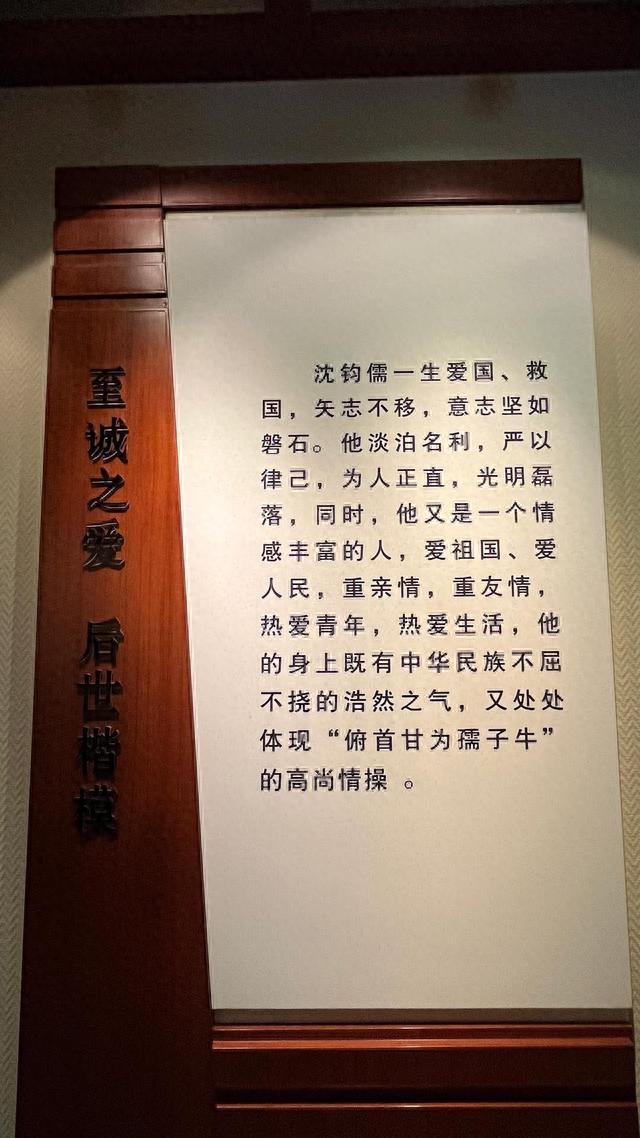 至诚之爱 后世楷模
沈钧儒一生爱国、救
国，矢志不移，意志坚如
磐石。他淡泊名利，严以
律己，为人正直，光明磊
落，同时，他又是一个情
感丰富的人，爱祖国、爱
人民，重亲情，重友情，
热爱青年，热爱生活，他
的身上既有中华民族不屈
不挠的浩然之气，又处处
体现“俯首甘为孺子牛”
的高尚情操 。